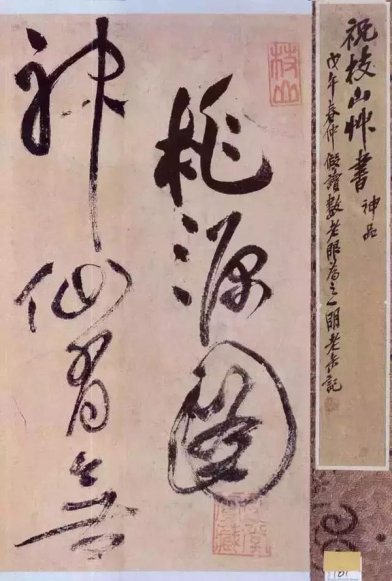 祝枝山艸書 神品
戊午春仲假讀數老眼為之一明老缶記
枝山
桃源圖
神仙有無
101